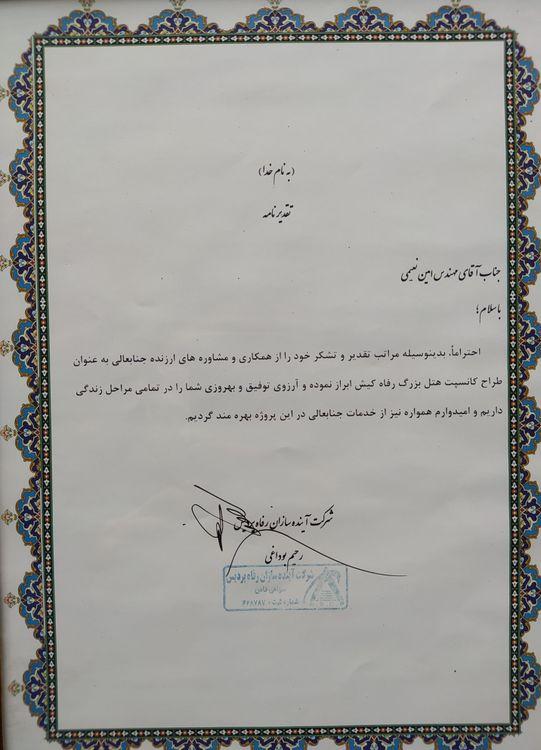 (به نام خدا)
تقدیر نامه
جناب آقای مهندس امین نعیمی
با سلام؛
احتراماً، بدینوسیله مراتب تقدیر و تشکر خود را از همکاری و مشاوره های ارزنده جنابعالی به عنوان
طراح کانسپت هتل بزرگ رفاه کیش ابراز نموده و آرزوی توفیق و بهروزی شما را در تمامی مراحل زندگی
داریم و امیدوارم همواره نیز از خدمات جنابعالی در این پروژه بهره مند گردیم.
شرکت آینده سازان رفاه پردیس
رحیم بوداغی
شرکت آینده سازان رفاه پردیس
سهامی خاص
شماره ثبت: ۴۲۸۷۸۷